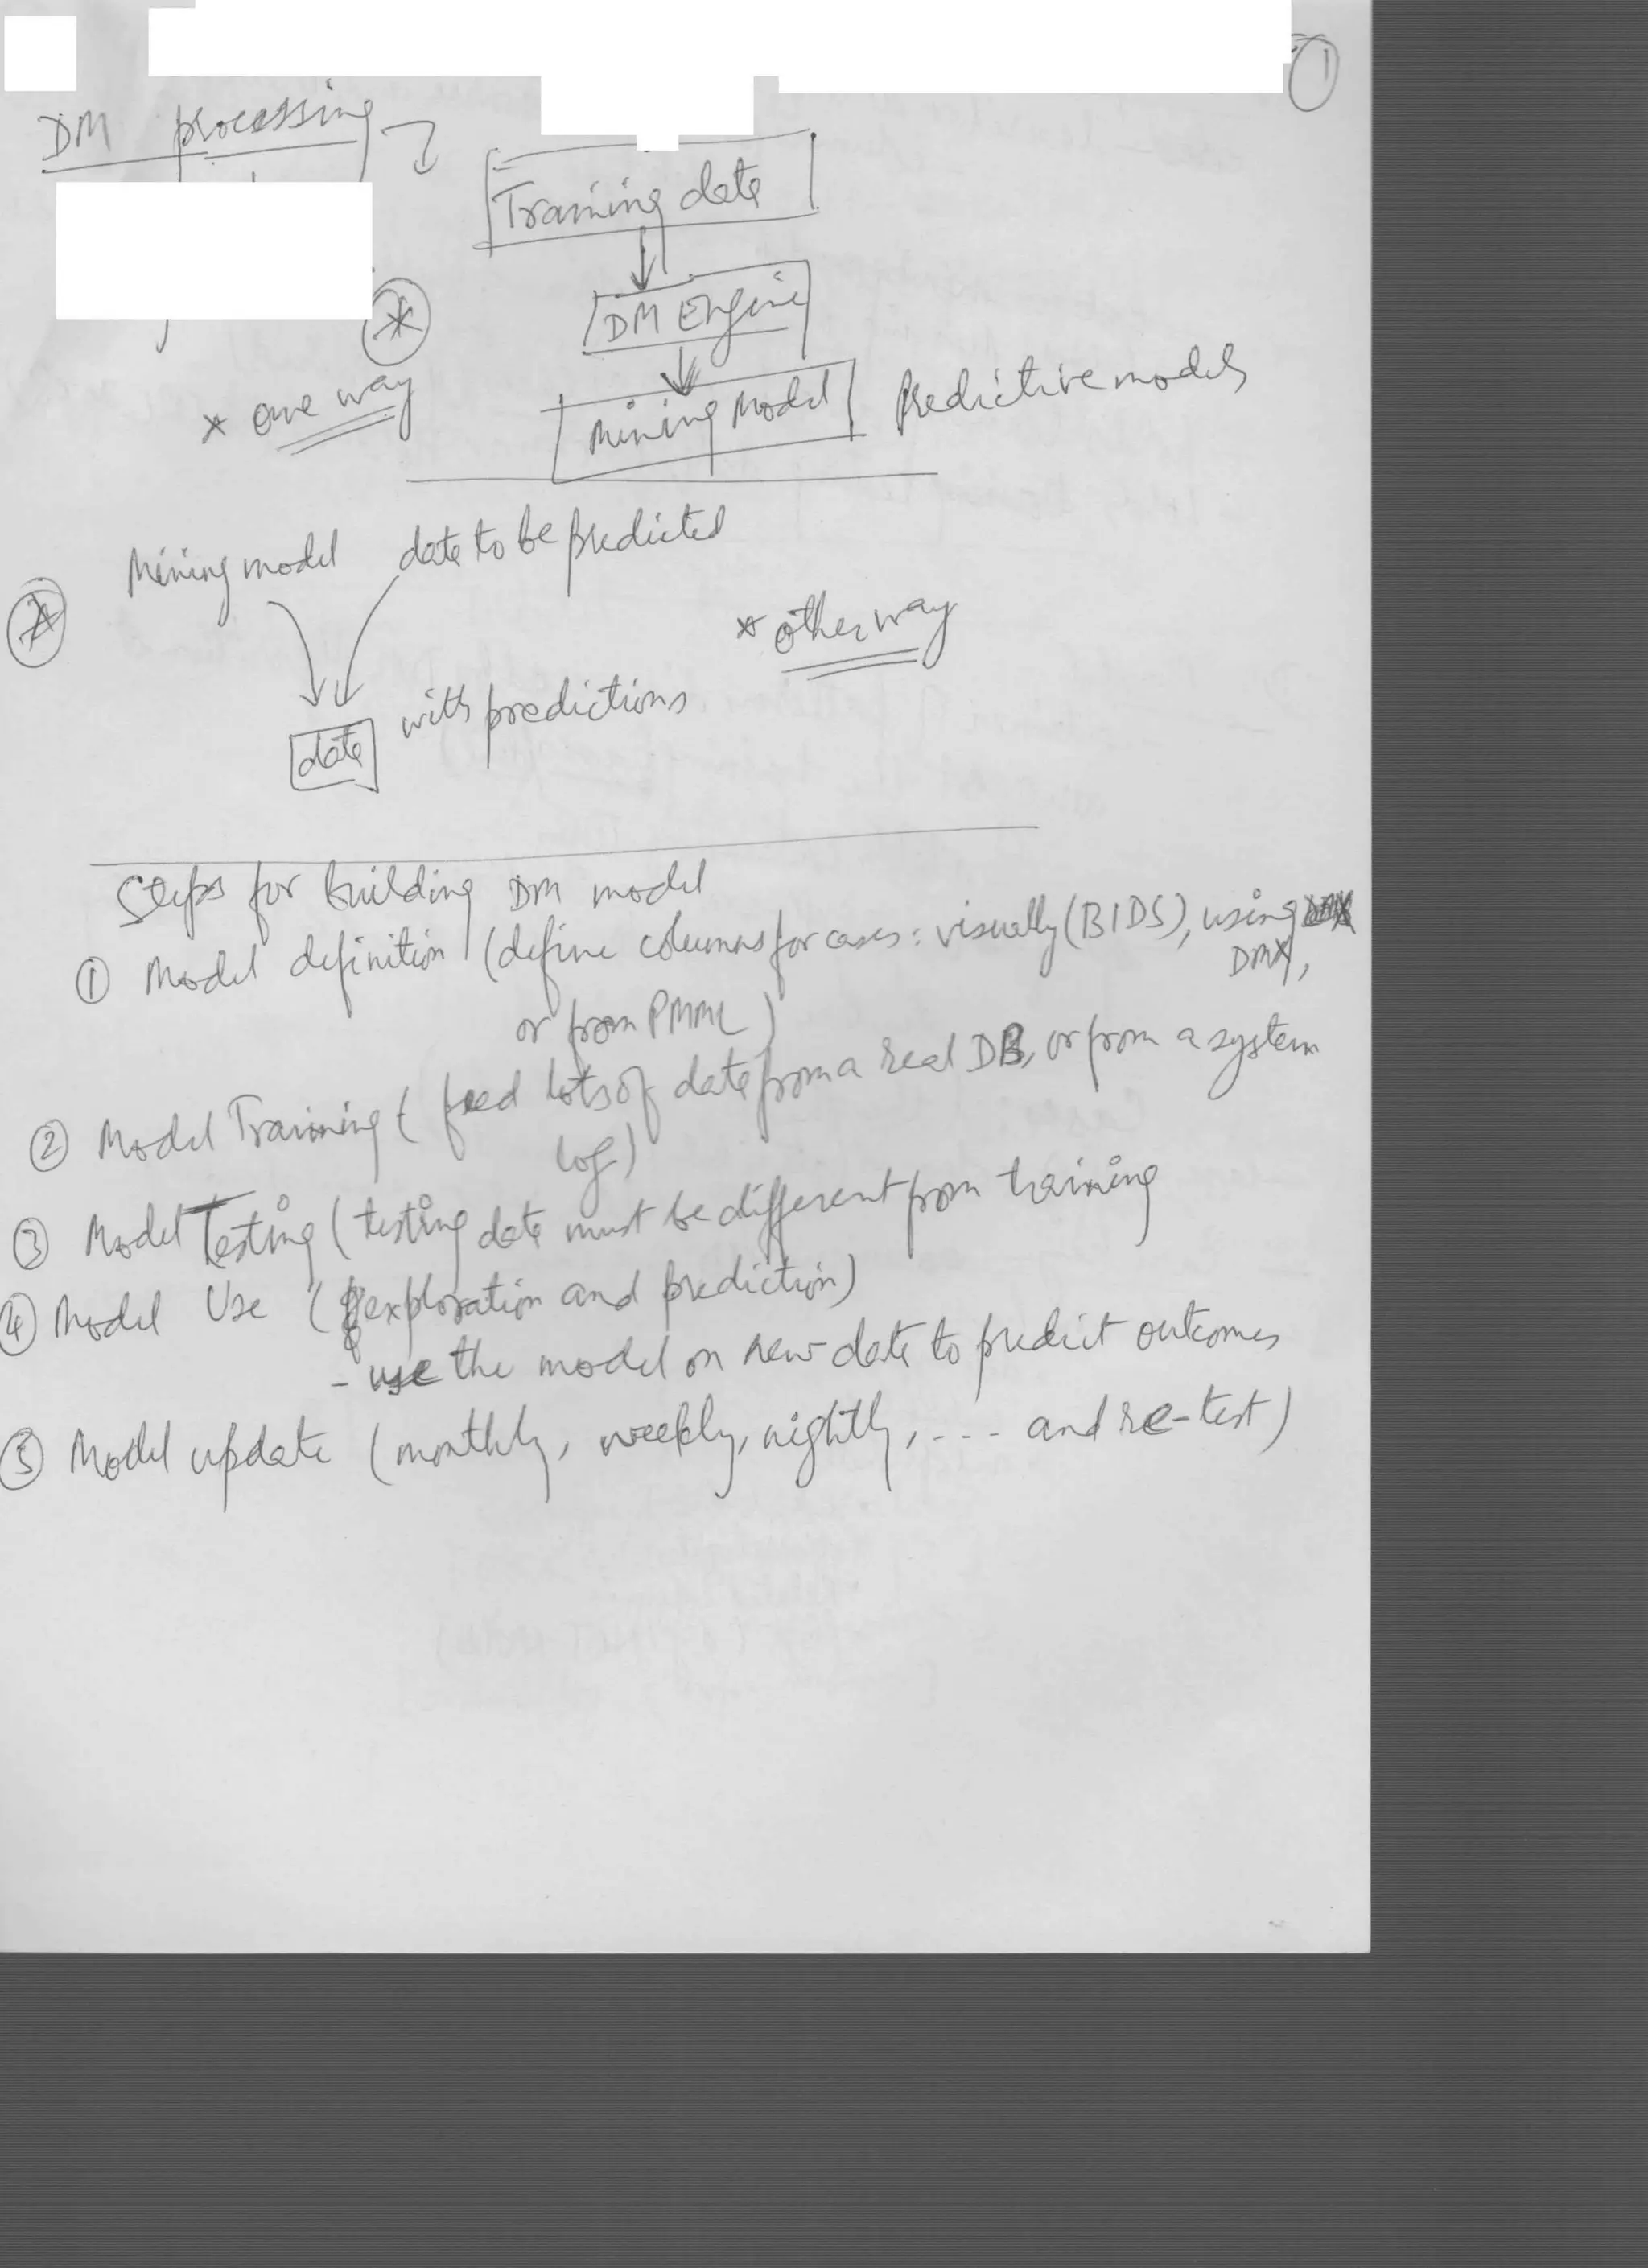 1
DM processing
Training data
DM Engine
* one way
Mining Model Predictive models
Mining model data to be predicted
* other way
data with predictions
Steps for building DM model
① Model definition (define columns for cases: visually (BIDS), using
DMX,
or from PMML)
② Model Training (feed lots of data from a real DB, or from a system
log)
③ Model Testing (testing data must be different from training
④ Model Use (exploration and prediction)
- use the model on new data to predict outcomes
⑤ Model update (monthly, weekly, nightly, .... and re-test)